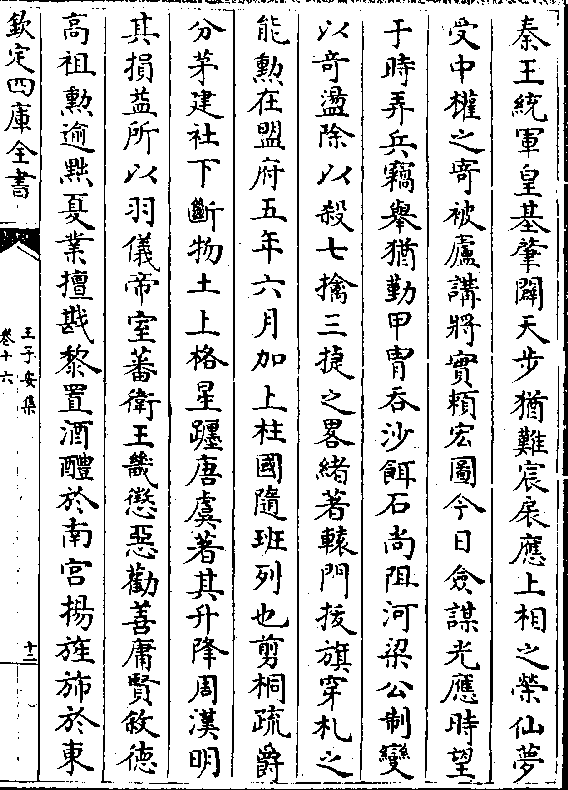 秦王統軍皇基肇闢天步猶難宸扆應上相之榮仙夢
受中權之寄被廬講將實賴宏圖今日僉謀光應時望
于時弄兵竊舉猶勤甲胄吞沙餌石尚阻河梁公制變
以竒盪除以殺七擒三捷之畧緒著轅門拔旗穿札之
能勲在盟府五年六月加上柱國隨班列也剪桐疏爵
分茅建社下斷物土上格星躔唐虞著其升降周漢明
其損益所以羽儀帝室蕃衛王畿懲惡勸善庸賢敘德
高祖勲逾㸃戛業擅戡黎置酒醴於南宫揚旌斾於東
欽定四庫全書
王子安集
卷十六
十二